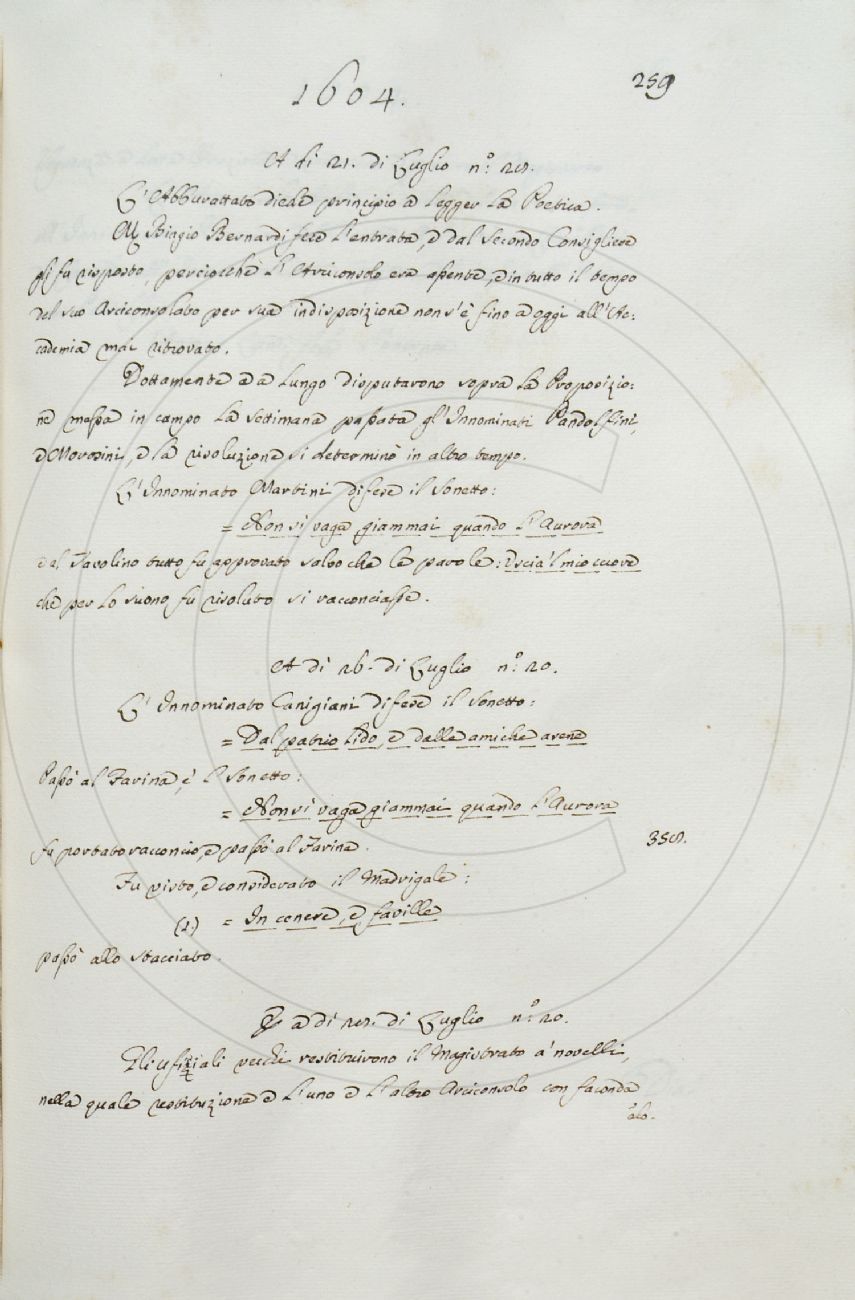 259
1604.
A dì 21. di Luglio n.º 28.
L'Abburattato diede principio a legger la Poetica.
M. Biagio Bernardi fece l'entrata, e dal secondo Consigliere
gli fu risposto, perciocchè l'Arciconsolo era assente, e in tutto il tempo
del suo Arciconsolato per sua indisposizione non s'è fino a oggi all'Ac:
cademia mai ritrovato.
Dottamente e a lungo disputarono sopra la Proposizio:
ne messa in campo la settimana passata gl'Innominati Pandolfini,
e Morosini, e la risoluzione si determinò in altro tempo.
L'Innominato Martini difese il sonetto:
= Non sì vaga giammai quando l'Aurora
dal Tavolino tutto fu approvato salvo che le parole: Escia'l mio cuore
che per lo suono fu risoluto si racconciasse.
A dì 26. di Luglio n.º 20.
L'Innominato Canigiani difese il sonetto:
= Dal patrio lido, e dalle amiche arene
Passò al Farina, e l sonetto:
= Non sì vaga giammai quando l'Aurora
fu portato racconcio, e passò al Farina.
358.
Fu visto, e considerato il Madrigale:
(1.) = In cenere, e faville
passò allo stacciato.
a dì 28. di Luglio n.º 20.
Gli ufiziali vecchi restituirono il Magistrato a' novelli,
nella quale restituzione e l'uno e l'altro Arciconsolo con faconda